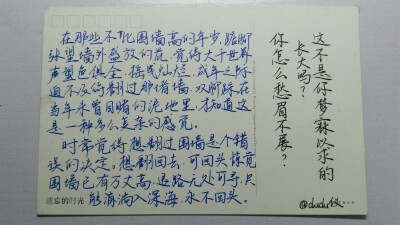 在那些不比围墙高的年岁，踮脚
张望墙外盛放的花，觉得大千世界
声色俱全、摇曳灿烂，成年之际
迫不及待翻过那堵墙，双脚踩在
当年未曾目睹的泥地里，才知道这
是一种多么复杂的感觉。
时常觉得想翻过围墙是个错
误的决定，想翻回去，可回头惊觉
围墙已有万丈高，退路无处可寻，只
能淌入深海，永不回头。
遗忘的时光
这不是你梦寐以求的
长大吗？
你怎么愁眉不展？
@dudu